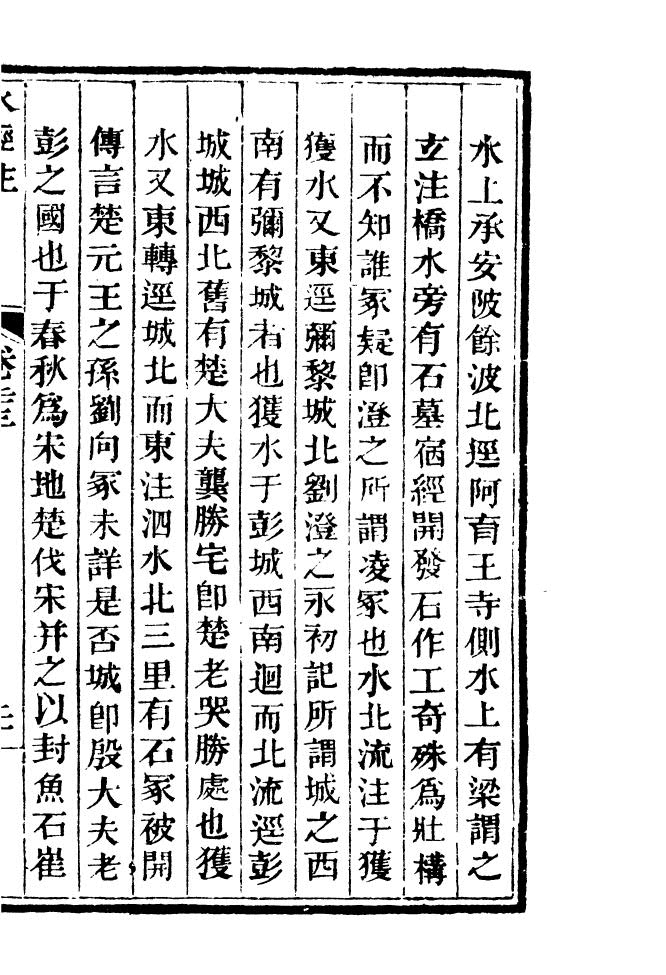 水上承安陂餘波北逕阿育王寺側水上有梁謂之
玄注橋水旁有石墓宿經開發石作工奇殊爲壯構
而不知誰冢疑卽澄之所謂凌冢也水北流注于獲
獲水又東逕彌黎城北劉澄之永初記所謂城之西
南有彌黎城者也獲水于彭城西南迴而北流逕彭
城城西北舊有楚大夫龔勝宅卽楚老哭勝處也獲
水又東轉逕城北而東注泗水北三里有石冢被開
傳言楚元王之孫劉向冢未詳是否城卽殷大夫老
彭之國也于春秋爲宋地楚伐宋并之以封魚石崔
水經注 卷二十三